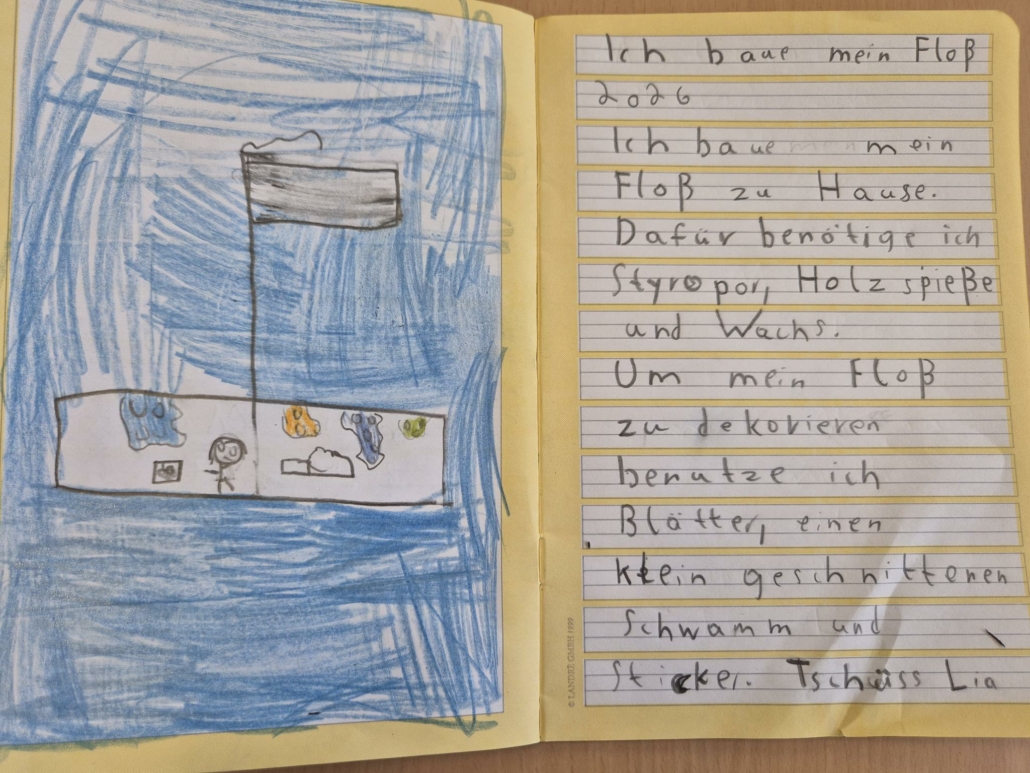 Ich baue mein Floß
2026
Ich baue mein
Floß zu Hause.
Dafür benötige ich
Styropor, Holzspieße
und Wachs.
Um mein Floß
zu dekorieren
benutze ich
Blätter, einen
klein geschnittenen
Schwamm und
Sticker. Tschüss Lia
© LANDRÉ GMBH 1999